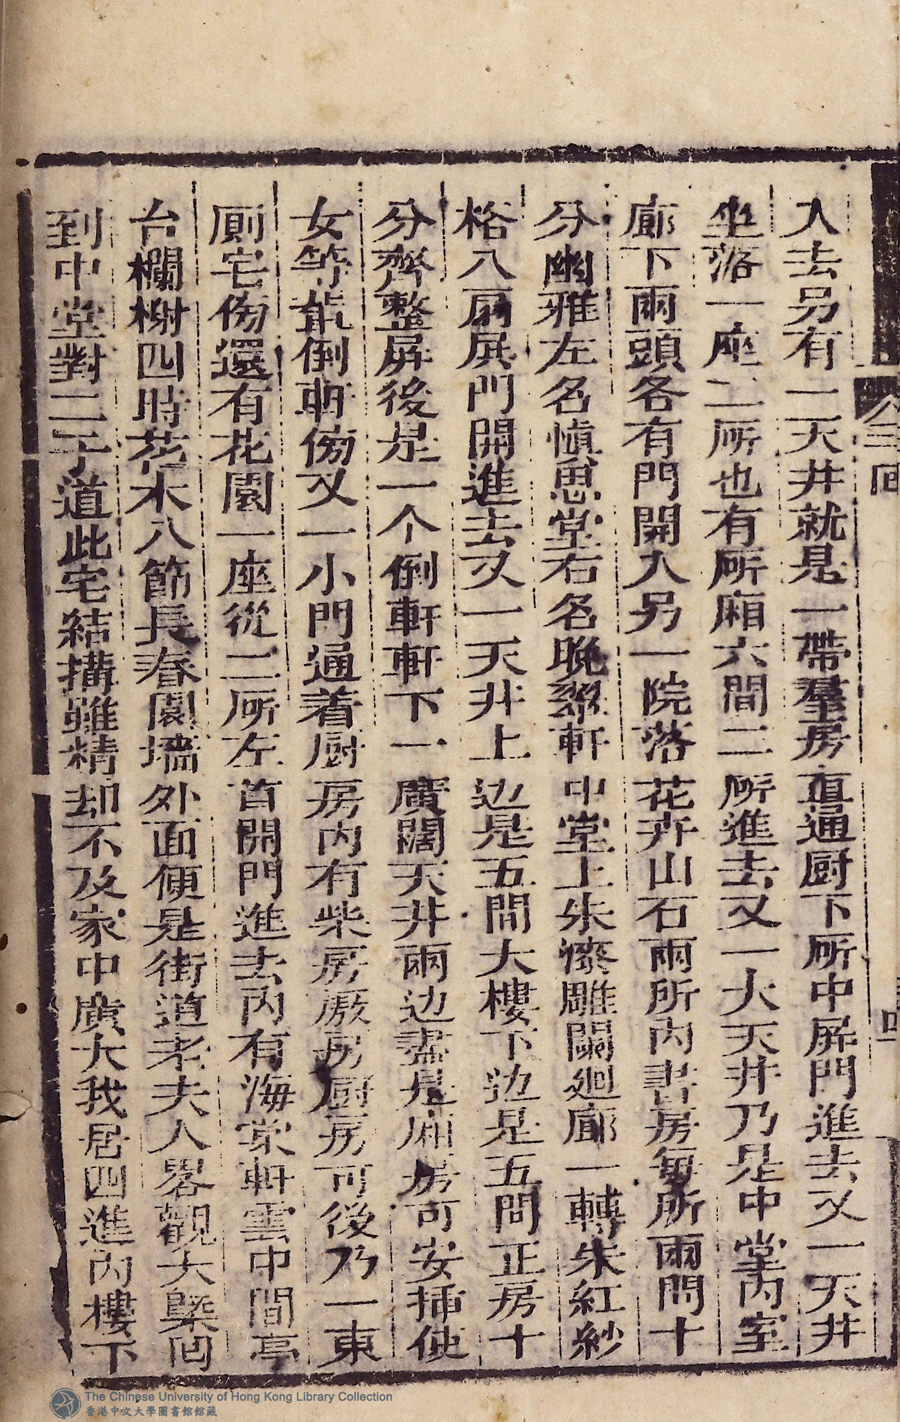 入去另有一天井就是一帶羣房直通厨下所中屏門進去又一天井
坐落一座二所也有所廂六間二所進去又一大天井乃是中堂內室
廊下兩頭各有門開入另一院落花卉山石兩所內書房每所兩間十
分幽雅左名慎思堂右名晚翠軒中堂上朱漆雕闌廻廊一轉朱紅紗
格八扇屏門開進去又一天井上边是五間大樓下边是五間正房十
分齊整屏後是一个倒軒軒下一廣闊天井兩边盡是廂房可安揷使
女等軰倒軒傍又一小門通着厨房內有柴房厫房厨房可後乃一東
厠宅傍還有花園一座從二所左首開門進去內有海棠軒雲中間亭
台欄榭四時花木八節長春園墙外面便是街道老夫人畧觀大槩囘
到中堂對二子道此宅結搆雖精却不及家中廣大我居四進內樓下
三回
四
The Chinese University of Hong Kong Library Collection
香港中文大學圖書館館藏